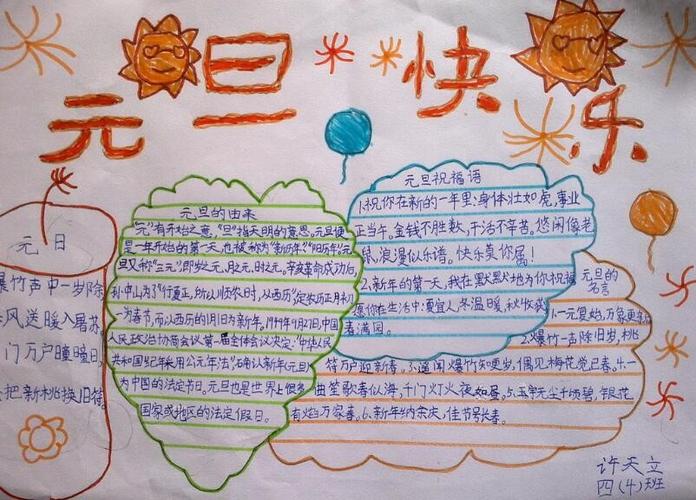 元旦快乐
元日
爆竹声中一岁除
风送暖入屠苏
门万户曈曈日
把新桃换旧符
元旦的由来
"元"有开始之意,"旦"指天明的意思。元旦便
是一年开始的第一天,也被称为"新历年""阳历年"。元
旦又称"三元",即岁之元、月之元、时之元。辛亥革命成功后,
孙中山为了"行夏正,所以顺农时,从西历",定农历正月初
一为春节,而以西历的1月1日为新年。1949年9月27日,中国
人民政治协商会议第一届全体会议决定:"中华人民
共和国纪年采用公元年法",确认新年元旦
为中国的法定节日。元旦也是世界上很多
国家或地区的法定假日。
元旦祝福语
1.祝你在新的一年里:身体壮如虎,事业
正当午。金钱不胜数,干活不辛苦。悠闲像老
鼠,浪漫似乐谱。快乐莫你属!
2.新年的第一天,我在默默地为你祝福
你在生活中:夏宜人,冬温暖,秋收
春满园。
元旦的
名言
1.一元复始,万象更新
2.爆竹一声除旧岁,桃
符万户迎新春。3.遥闻爆竹知更岁,偶见梅花觉已春。4.一
曲笙歌春似海,千门灯火夜如昼。5.玉宇无尘千顷碧,银花
有焰万家春。6.新年纳余庆,佳节号长春。
许天立
四(4)班